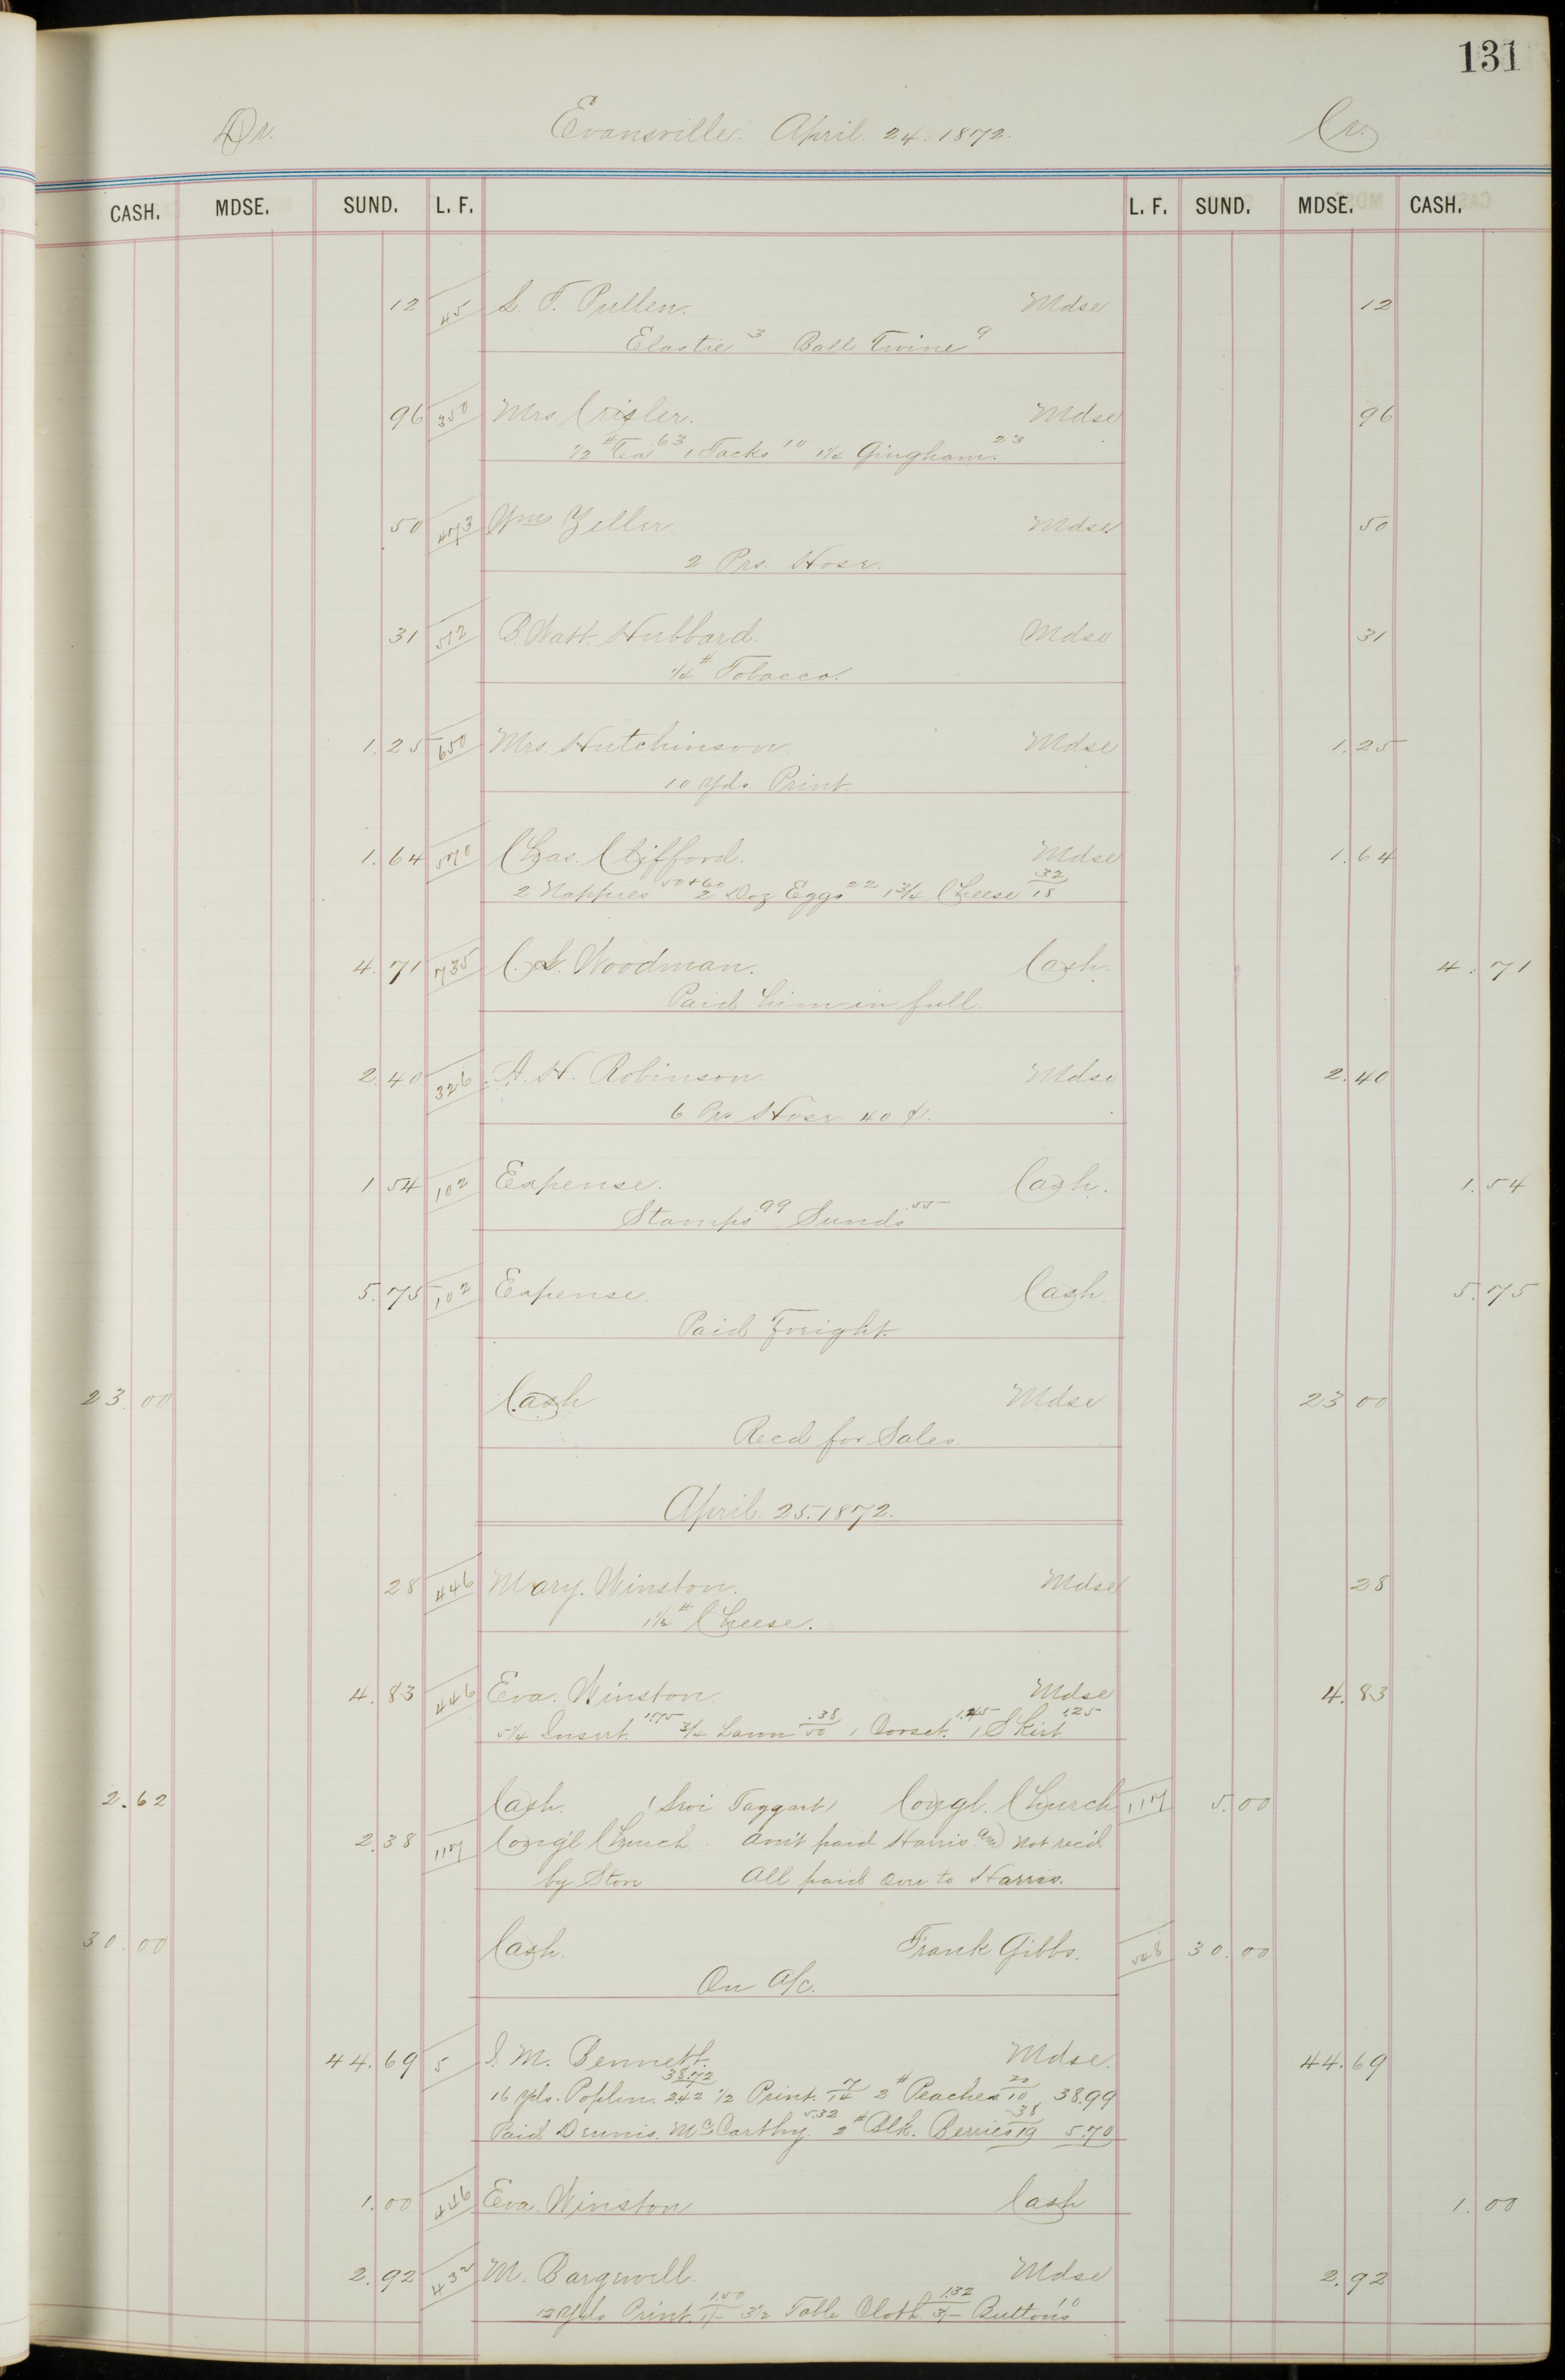 131
Dr. Evansville. April 24. 1872. Cr.
CASH. MDSE. SUND. L. F. L. F. SUND. MDSE. CASH.
12 45 L. T. Pullen. Mdse 12
Elastic 3 Ball Twine 9
96 350 Mrs. Crisler. Mdse 96
1/2 # Tea 63 1 Tacks 10 1 1/4 Gingham. 23
50 473 Wm Zeller Mdse 50
2 Prs. Hose.
31 572 B. Watt. Hubbard. Mdse 31
1/4 # Tobacco.
1.25 650 Mrs. Hutchinson Mdse 1.25
10 Yds Print.
1.64 570 Chas. Clifford. Mdse 1.64
2 Nappies 50+60 2 Doz Eggs 22 1 3/4 Cheese 32/18
4.71 735 C. L. Woodman. Cash. 4.71
Paid him in full.
2.40 326 A. H. Robinson. Mdse 2.40
6 Prs Hose 40 ¢.
1 54 102 Expense. Cash. 1.54
Stamps 99 Sunds 55
5.75 102 Expense. Cash. 5.75
Paid Freight.
23.00 Cash Mdse 23 00
Recd for Sales
April. 25. 1872.
28 446 Mary. Winston. Mdse 28
1 1/2 # Cheese.
4.83 446 Eva. Winston. Mdse 4.83
5 1/4 Insert. 1.75 3/4 Lawn .38/50 1 Corset. 1.45 1 Skirt 1.25
2.62 Cash. (Levi Taggart) Congl. Church 117 5.00
2.38 117 Cong'l Church. Am't paid Harris and not rec'd
by Store All paid over to Harris.
30.00 Cash. Frank Gibbs. 548 30.00
On A/c.
44.69 5 I. M. Bennett. Mdse. 44.69
16 yds. Poplin. 38.72/2.42 1/2 Print. 7/14 2 # Peaches 20/10 38.99
Paid Dennis. McCarthy 5.32 2 # Blk. Berries 38/19 5.70
1.00 446 Eva. Winston Cash 1.00
2.92 432 M. Bargewell. Mdse 2.92
12 Yds Print. 1.50/1/- 3 1/2 Table Cloth 1.32/3/- Buttons 10